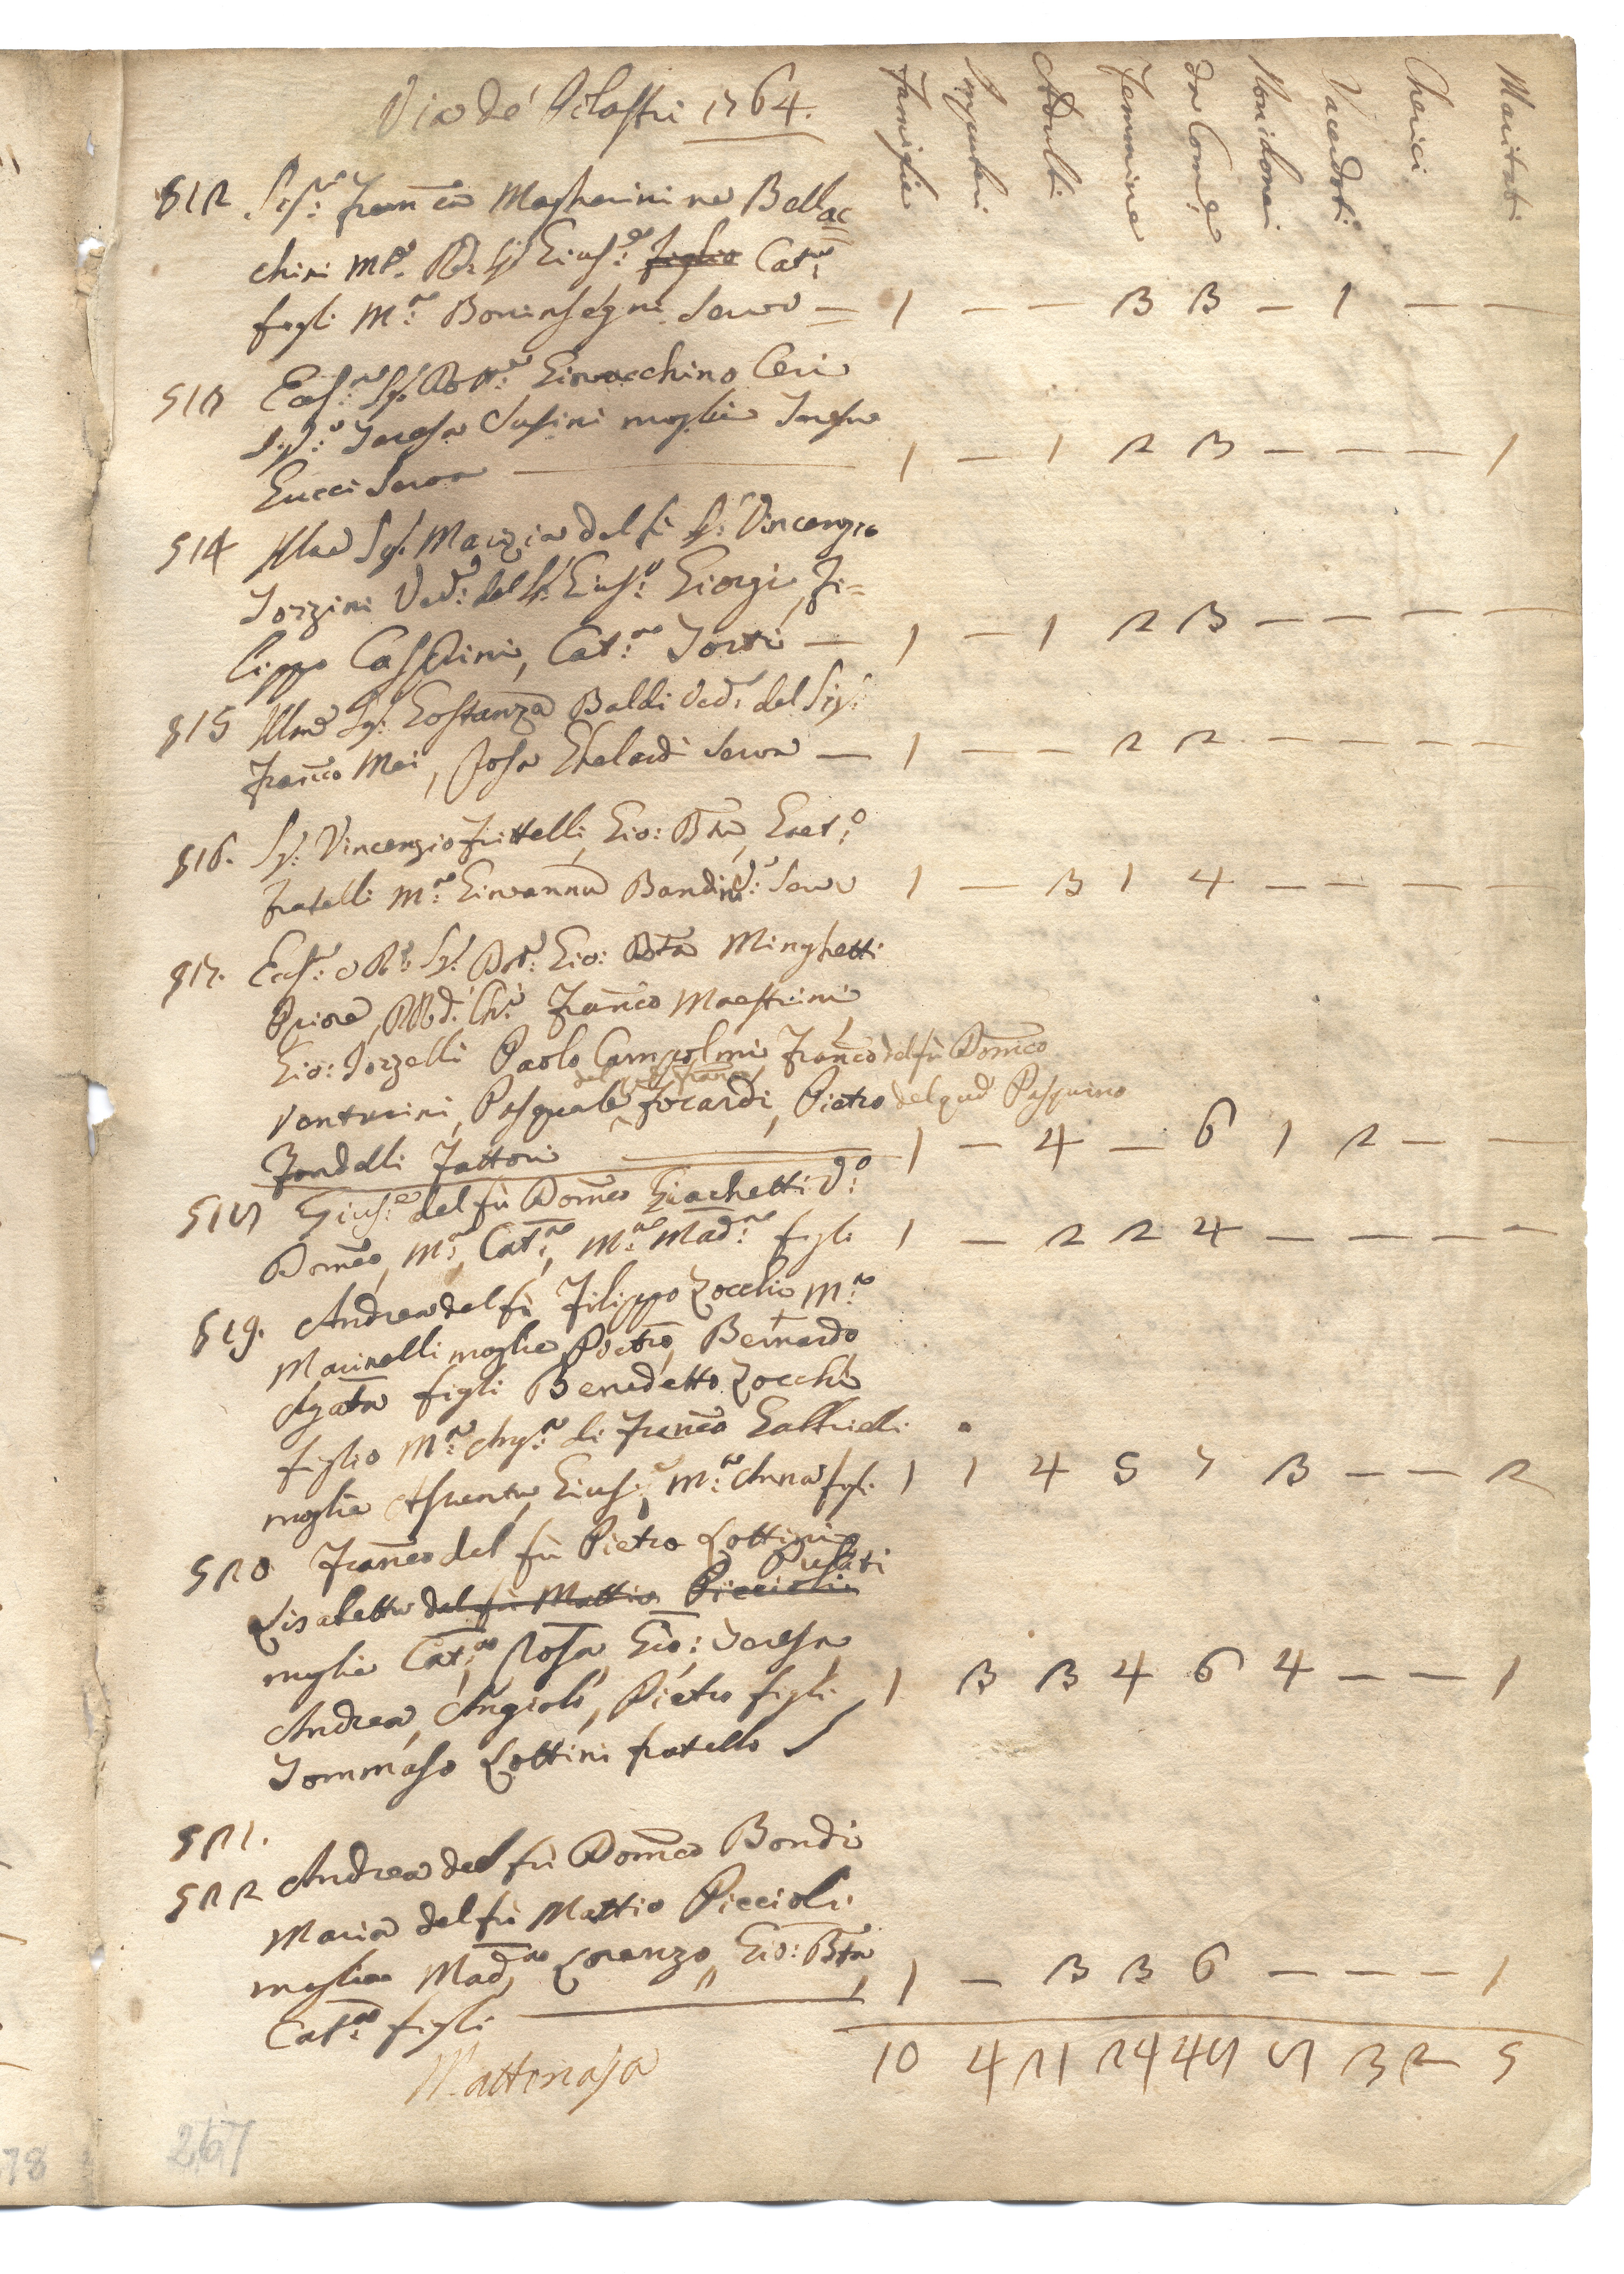 Via de' Pilastri 1764.
Famiglie Impuberi Adulti Femmine da Com:e Non idonei Sacerdoti Cherici Maritati
512 Sig:ra Franca Magherini ne Bellac
chini Ma. Giuse: figlio Cat:a
figli Ma: Boninsegni Serva — 1 — — 3 3 — 1 — —
513 Ecc:mo Sig. Dott:re Giovacchino Ceri
Sig:a Teresa Susini moglie Teresa
Gucci Serva — 1 — 1 2 3 — — — 1
514 Illma Sig. Marzia del fù Sig. Vincenzio
Torzini Ved:a del Sig. Gius:e Giorgi, Fi=
lippo Casprini, Cat:na Torti — 1 — 1 2 3 — — — —
515 Illma Sig. Costanza Baldi Ved:a del Sig.
Franco Mei, Rosa Chelardi Serva — 1 — — 2 2 — — — —
516. Sig. Vincenzio Frittelli, Gio: Bta, Gaet:o
fratelli Ma: Giovanna Bandini: Serva 1 — 3 1 4 — — — —
517. Ecc:mo e R: Sig. Dott: Gio: Bta Minghetti
Priore, Rd: Ch: Franco Maestrini
Gio: Torzelli Paolo Campolmi, Franco del fù Domco
Venturini, Pasquale Focardi, Pietro del qud Pasquino
del qud Franco
Fondelli Fattori — 1 — 4 — 6 1 2 — —
518 Gius:e del fù Domco Giachetti Vo:
Domco, Ma:, Cat:na, Ma: Mad:na figli 1 — 2 2 4 — — — —
519. Andrea del fù Filippo Zocchi Ma:
Marinelli moglie, Pietro, Bernardo
Agata figli Benedetto Zocchi
figlio Ma: Ang:a di Franco Gabbrielli
moglie Assunta, Gius:e, Ma: Anna figli 1 1 4 5 7 3 — — 2
520 Franco del fù Pietro Lottini
Lisabetta del fù Mattio Piccioli Pusati
moglie Cat:na Rosa Gio: Teresa
Andrea, Angiolo, Pietro figli 1 3 3 4 6 4 — — 1
Tommaso Lottini fratello
521.
522 Andrea del fù Domco Bondi
Maria del fù Mattio Piccioli
moglie Mad:na Lorenzo, Gio: Bta 1 — 3 3 6 — — — 1
Cat:na figli
Mattonaja
10 4 21 24 48 8 3 2 5
267
78